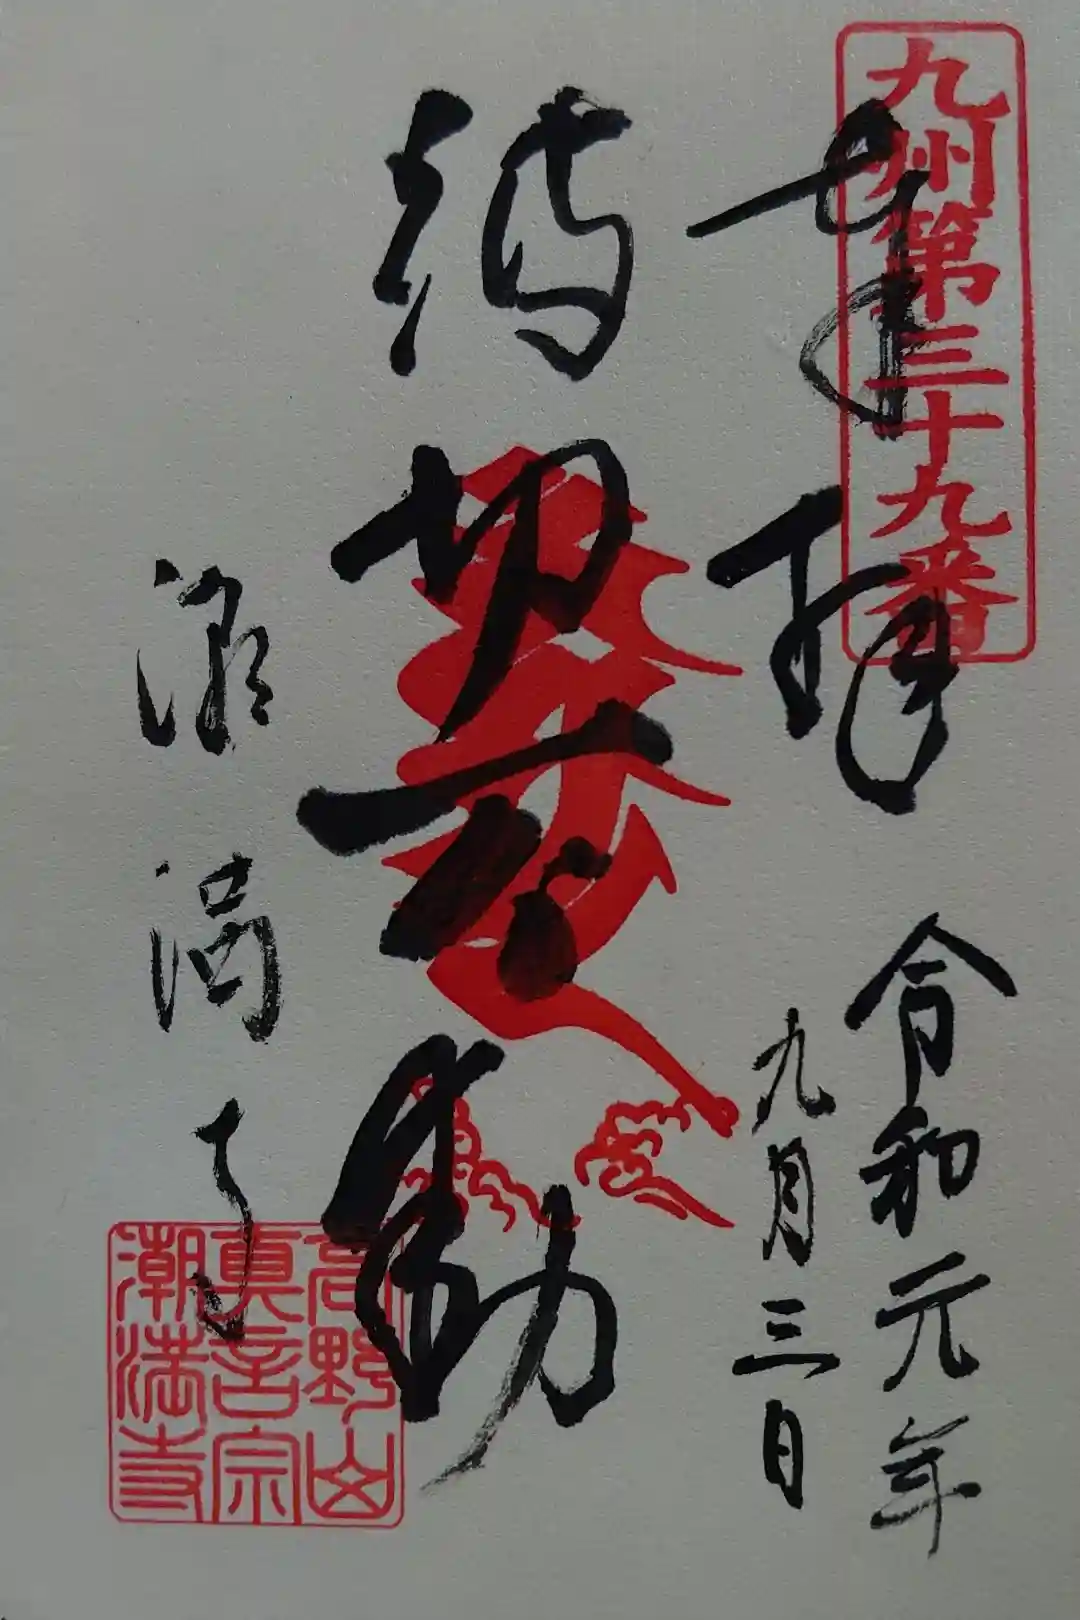 九州第三十九番
奉拝
令和元年
九月三日
縛切不動
潮満寺
高野山
真言宗
潮満寺